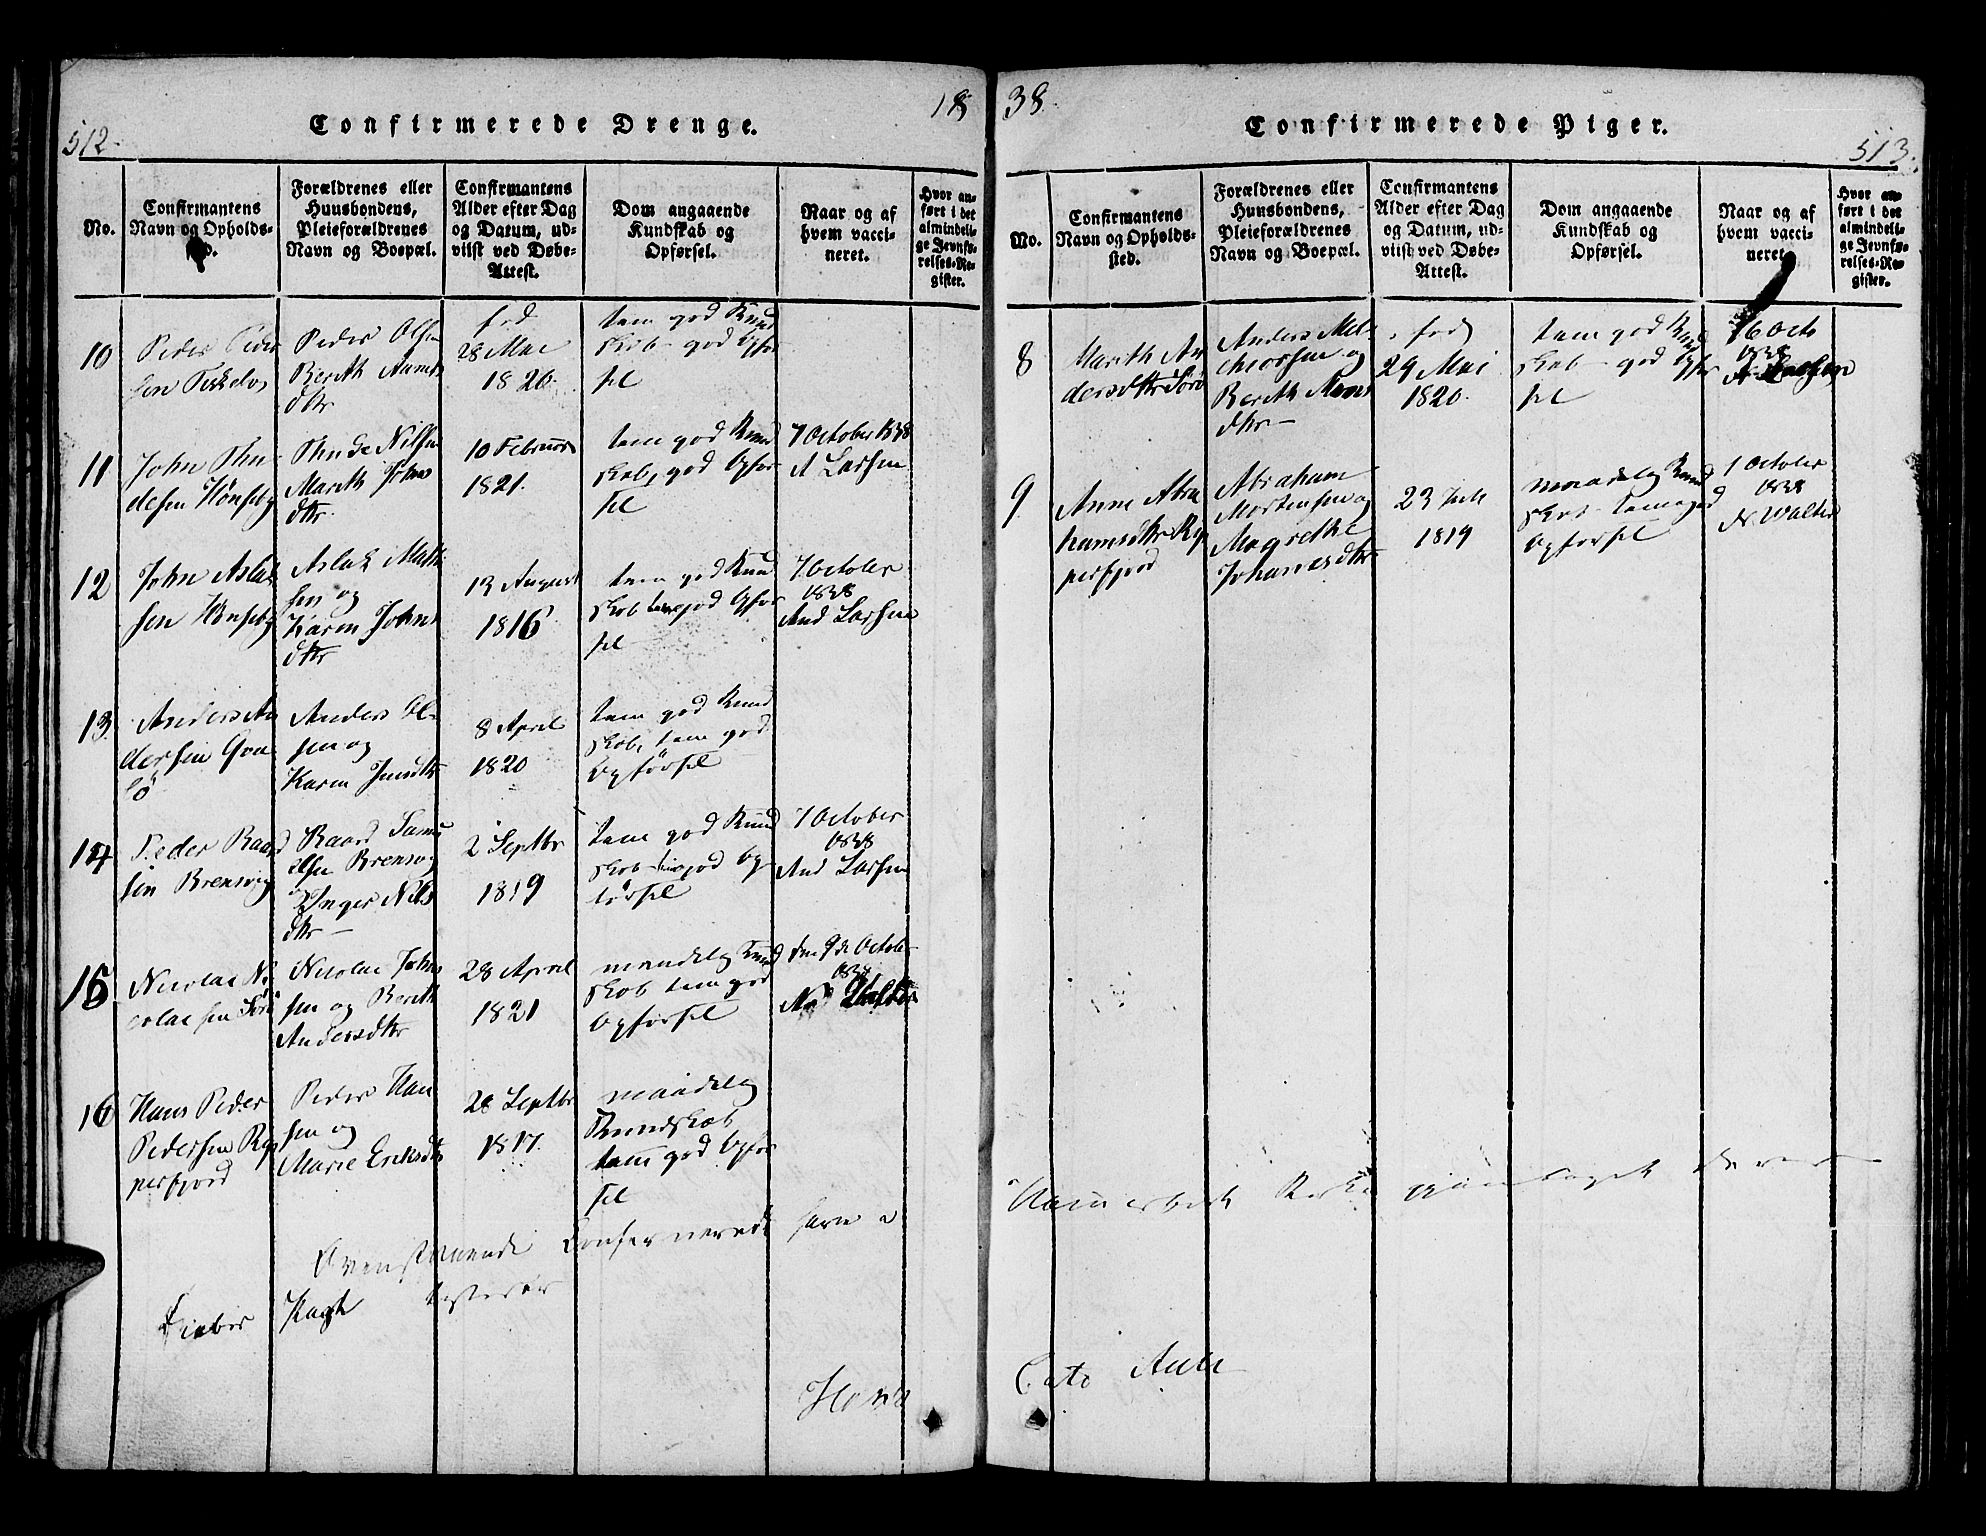 512.
Confirmerede Drenge.
18
No.
Confirmantens
Navn og Opholds-
sted.
Forældrenes eller
Huusbondens,
Pleieforældrenes
Navn og Boepæl.
Confirmantens
Alder efter Dag
og Datum, ud-
viist ved Døbe-
Attest.
Dom angaaende
Kundskab og
Opførsel.
Naar og af
hvem vacci-
neret.
Hvor an-
ført i det
almindeli-
ge Jevnfø-
relses-Re-
gister.
10
Peder Peder
sen
Peder Olsen
Berith
dtr
fød
28 Mai
1820.
tem god Kund
skab- god Opfør
sel
11
John Thu-
desen Hønseby
Thude Nilsen
Marith Johns
dtr.
10 Februar
1821.
tem god Kund
skab, god Opfør
sel
7 October 1838
A Larsen
12
John Aslak
sen Hønseby
Aslak Math
sen og
Karen Johns
dtr
13 August
1816
tem god Kund
skab temgod Opfør
sel
7 October
1838
And Larsen
13.
Anders An
dersen
Anders Ol-
sen og
Karen
8 April
1820
tem god Kund
skab, tem god
Opførsel
14
Peder Baard
sen Brensvig
Baard Sam
elsen Brensvog
og
Inger Nils
dtr
2 Septbr
1819
tem god Kund
skab- temgod Op-
førsel
7 October
1838
And Larsen
15
Nicolai Ni
colaisen
Nicolai Johns
sen og Berith
Andersdtr
28 April
1821
maadelig Kund
skab tem god
Opførsel
den 9de October
1838
16
Hans Peder
Pedersen Rep
perfjord
Peder Han
sen og
Marie Eriksdtr
28 Septbr
1817.
maadelig
Kundskab
tem god Opfør
sel
Ovenstaaende Confirmerede
Kagh testerer
38.
Confirmerede Piger.
513.
No.
Confirmantens
Navn og Opholds-
sted.
Forældrenes eller
Huusbondens,
Pleieforældrenes
Navn og Boepæl.
Confirmantens
Alder efter Dag
og Datum, ud-
viist ved Døbe-
Attest.
Dom angaaende
Kundskab og
Opførsel.
Naar og af
hvem vacci-
neret.
Hvor an-
ført i det
almindeli-
ge Jevnfø-
relses-Re-
gister.
8
Marith An
dersdtr
Anders Mel-
chiorsen og
Berith Mons
dtr
fød
29 Mai
1820.
tem god Kund
skab- god Opfør
sel
16 Octb
1838
9
Anne Abra
hamsdtr Rep
perfjord
Abraham
Mortensen og
Magrethe
Johannesdtr
23 Juli
1819
maadelig Kund
skab- temgod
Opførsel
7 October
1838
N Walter